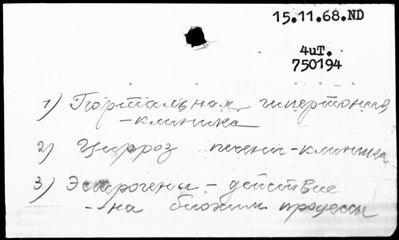 15.11.68.ND
4иТ.
750194
1) Портальная гипертония
- клиника
2) Цирроз печени - клиника
3) Эстрогены - действие
- на биохим. процессы